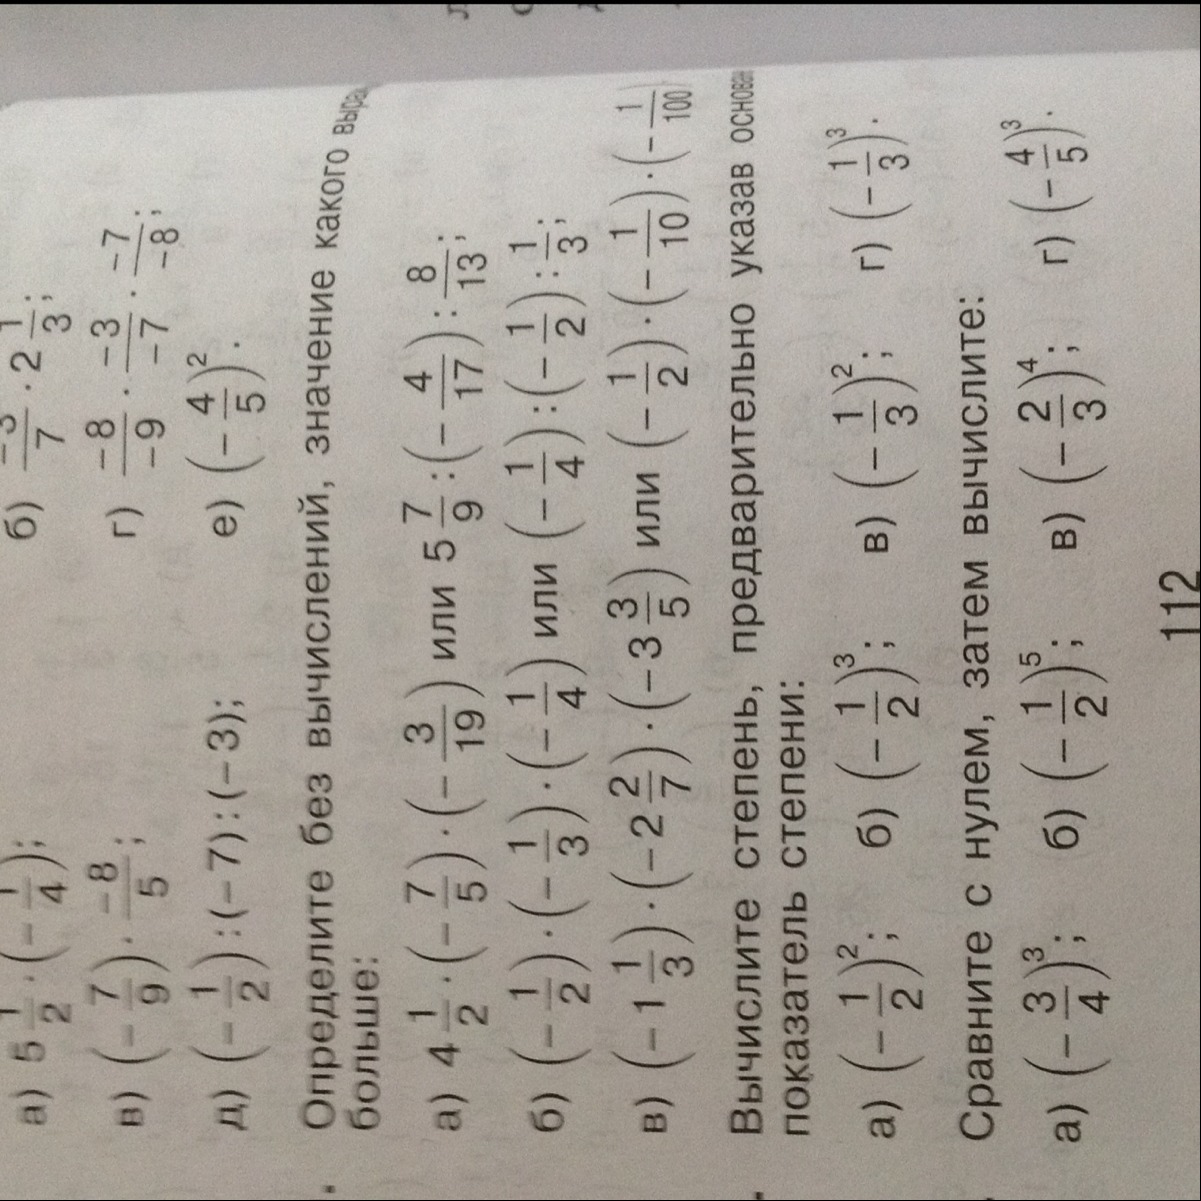 а) 5 1/2 · (− 1/4);   б) −3/7 · 2 1/3;
в) (− 7/9) · −8/5;   г) −8/−9 · −3/−7 · −7/−8;
д) (− 1/2) : (− 7) : (− 3);   е) (− 4/5)².
Определите без вычислений, значение какого
больше:
а) 4 1/2 · (− 7/5) · (− 3/19) или 5 7/9 : (− 4/17) : 8/13;
б) (− 1/2) · (− 1/3) · (− 1/4) или (− 1/4) : (− 1/2) : 1/3;
в) (− 1 1/3) · (− 2 2/7) · (− 3 3/5) или (− 1/2) · (− 1/10) · (− 1/100)
Вычислите степень, предварительно указав
показатель степени:
а) (− 1/2)²;   б) (− 1/2)³;   в) (− 1/3)²;   г) (− 1/3)³.
Сравните с нулем, затем вычислите:
а) (− 3/4)³;   б) (− 1/2)⁵;   в) (− 2/3)⁴;   г) (− 4/5)³.
112